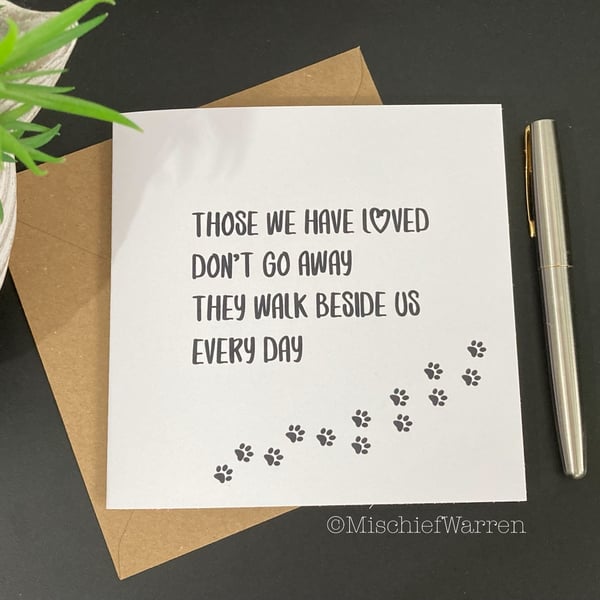 THOSE WE HAVE LOVED
DON'T GO AWAY
THEY WALK BESIDE US
EVERY DAY
©MischiefWarren